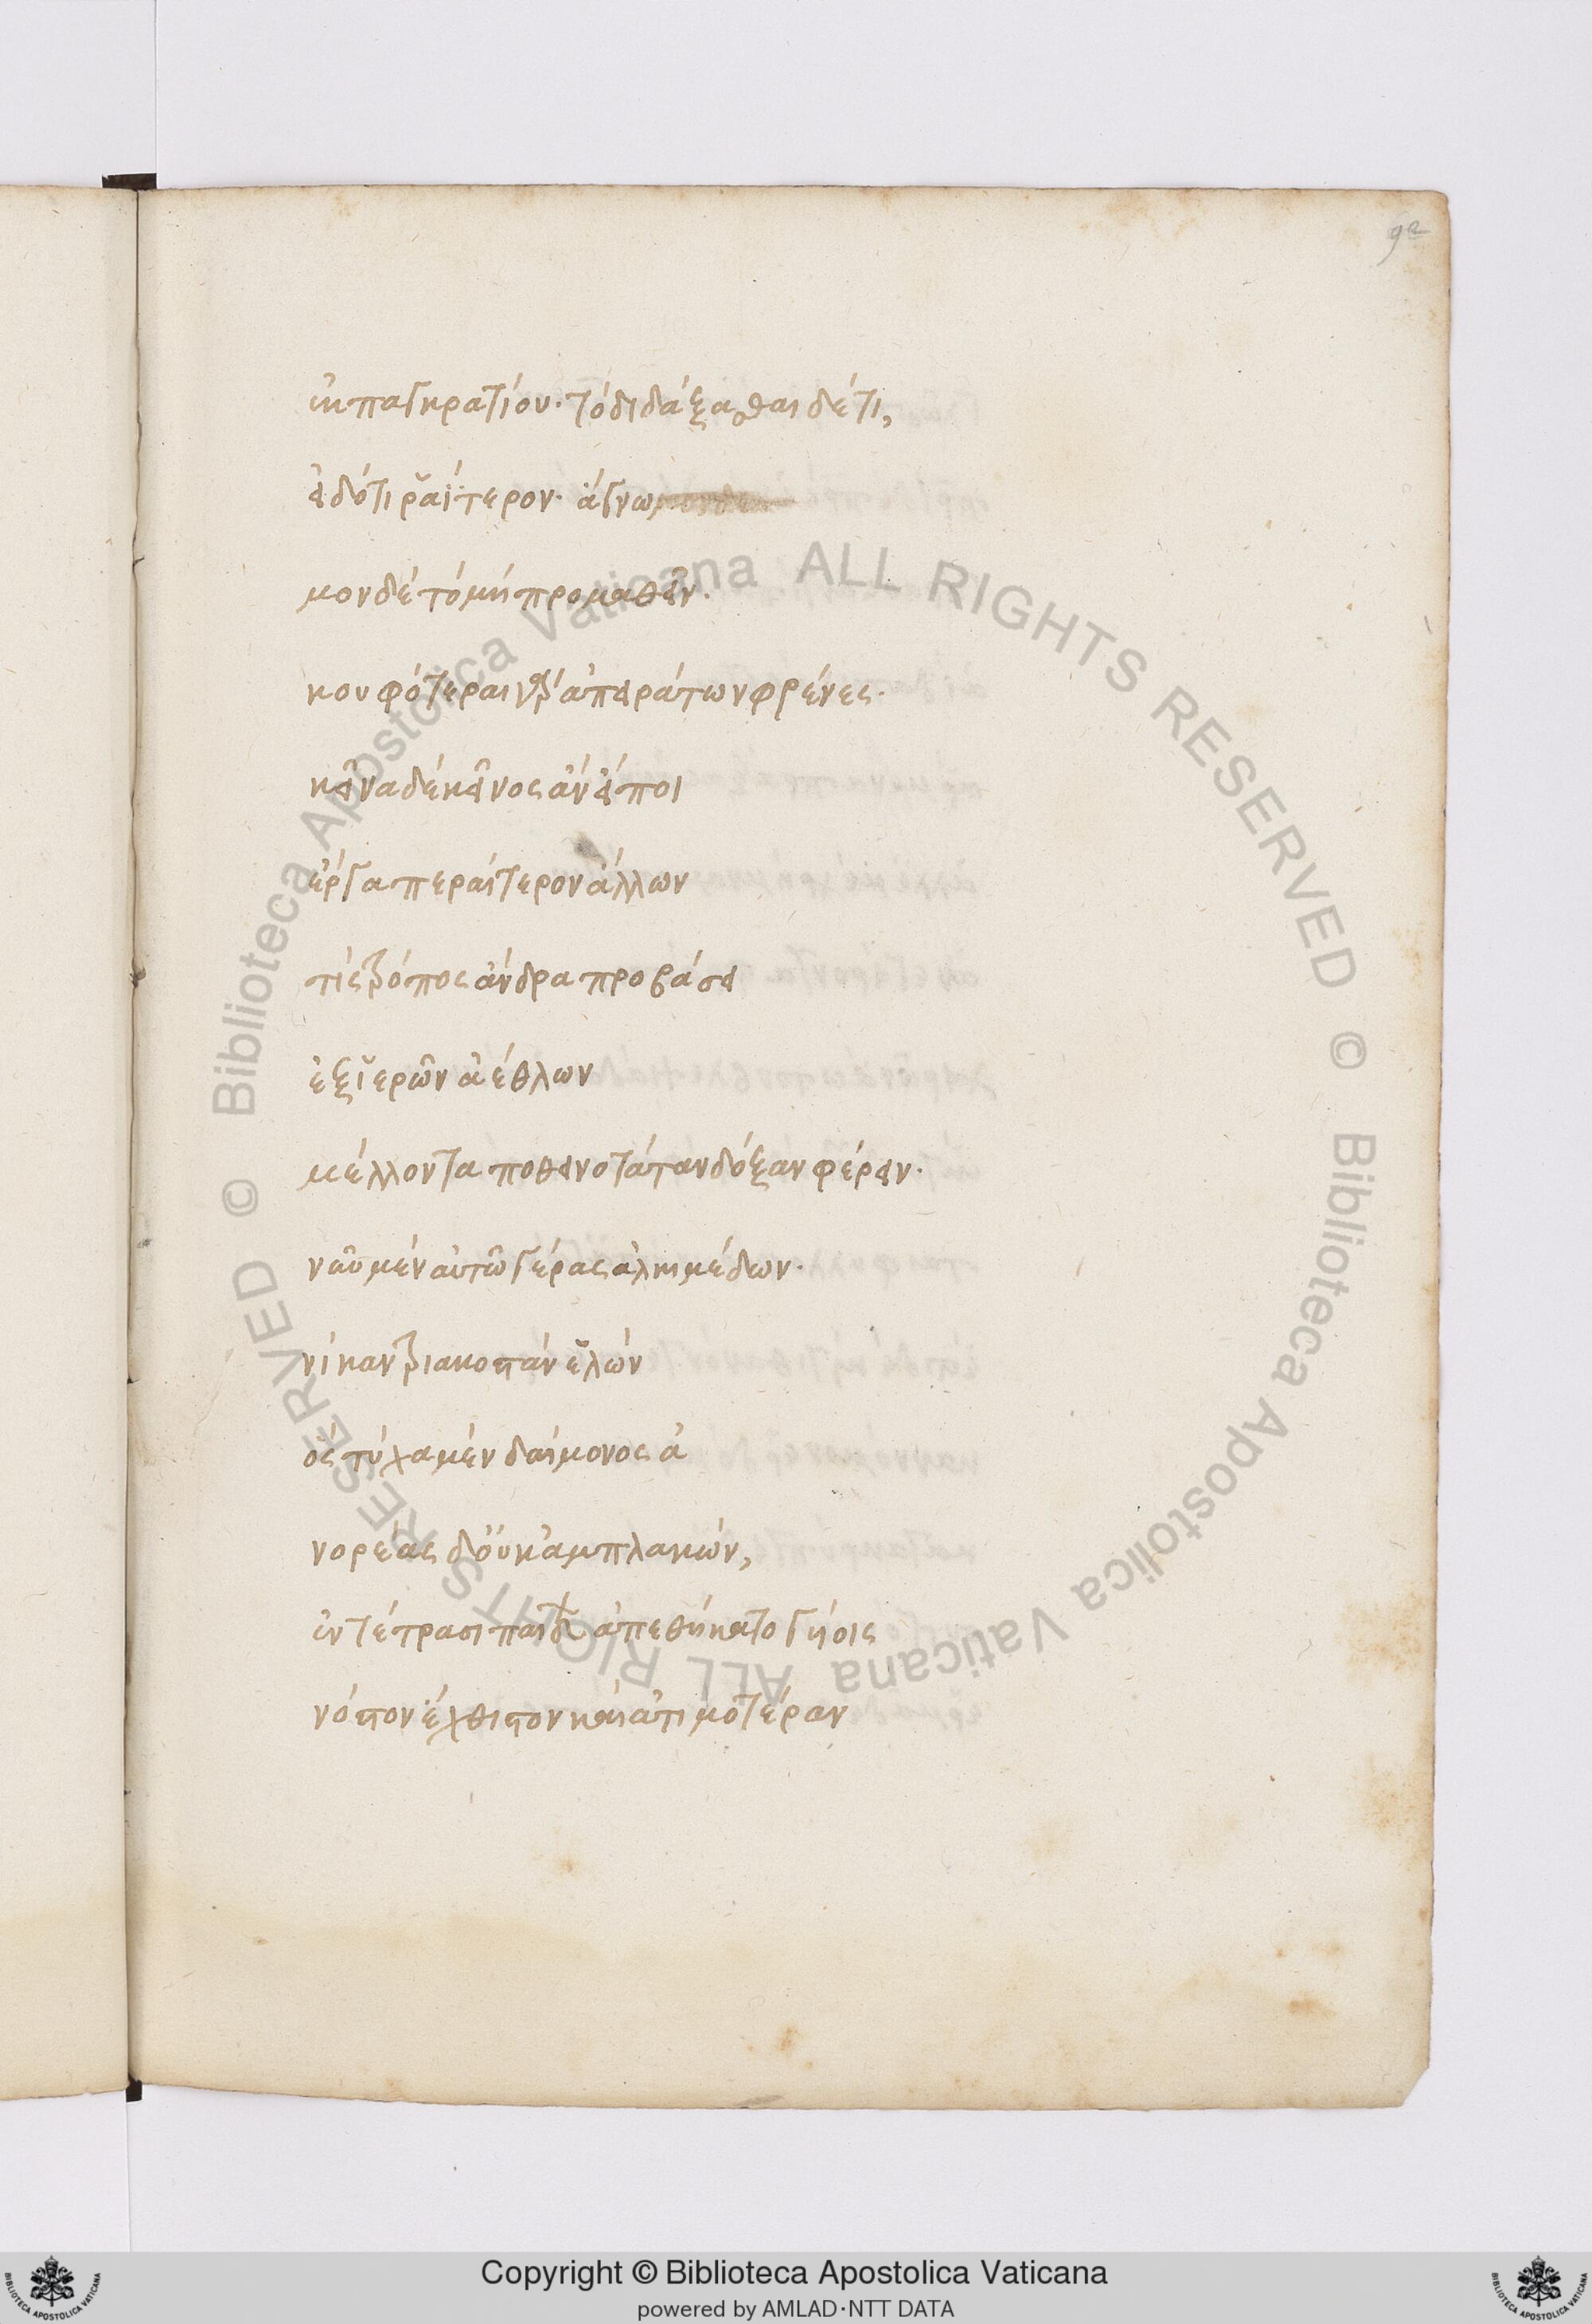 92
ἐκ παγκρατίου· τὸ διδάξασθαι δέ τι,
εἰδότι ῥαΐτερον· ἄγνω
μον δὲ τὸ μὴ προμαθεῖν.
κουφότεραι γὰρ ἀπειράτων φρένες·
κεῖνα δὲ κεῖνος ἂν εἴποι
ἔργα περαίτερον ἄλλων
τίς τρόπος ἄνδρα προβάσει
ἐξ ἱερῶν ἀέθλων
μέλλοντα ποθεινοτάταν δόξαν φέρειν·
νῦν μὲν αὐτῶ γέρας ἀλκιμέδων·
νίκαν τριακοστὰν ἑλών
ὃς τύχα μὲν δαίμονος ἀ
νορέας δ' οὐκ ἀμπλακών,
ἐν τέτρασι παίδων ἀπεθήκατο γυίοις
νόστον ἔχθιστον καὶ ἀτιμοτέραν
© Biblioteca Apostolica Vaticana ALL RIGHTS RESERVED © Biblioteca Apostolica Vaticana ALL RIGHTS RESERVED
Copyright © Biblioteca Apostolica Vaticana
powered by AMLAD·NTT DATA